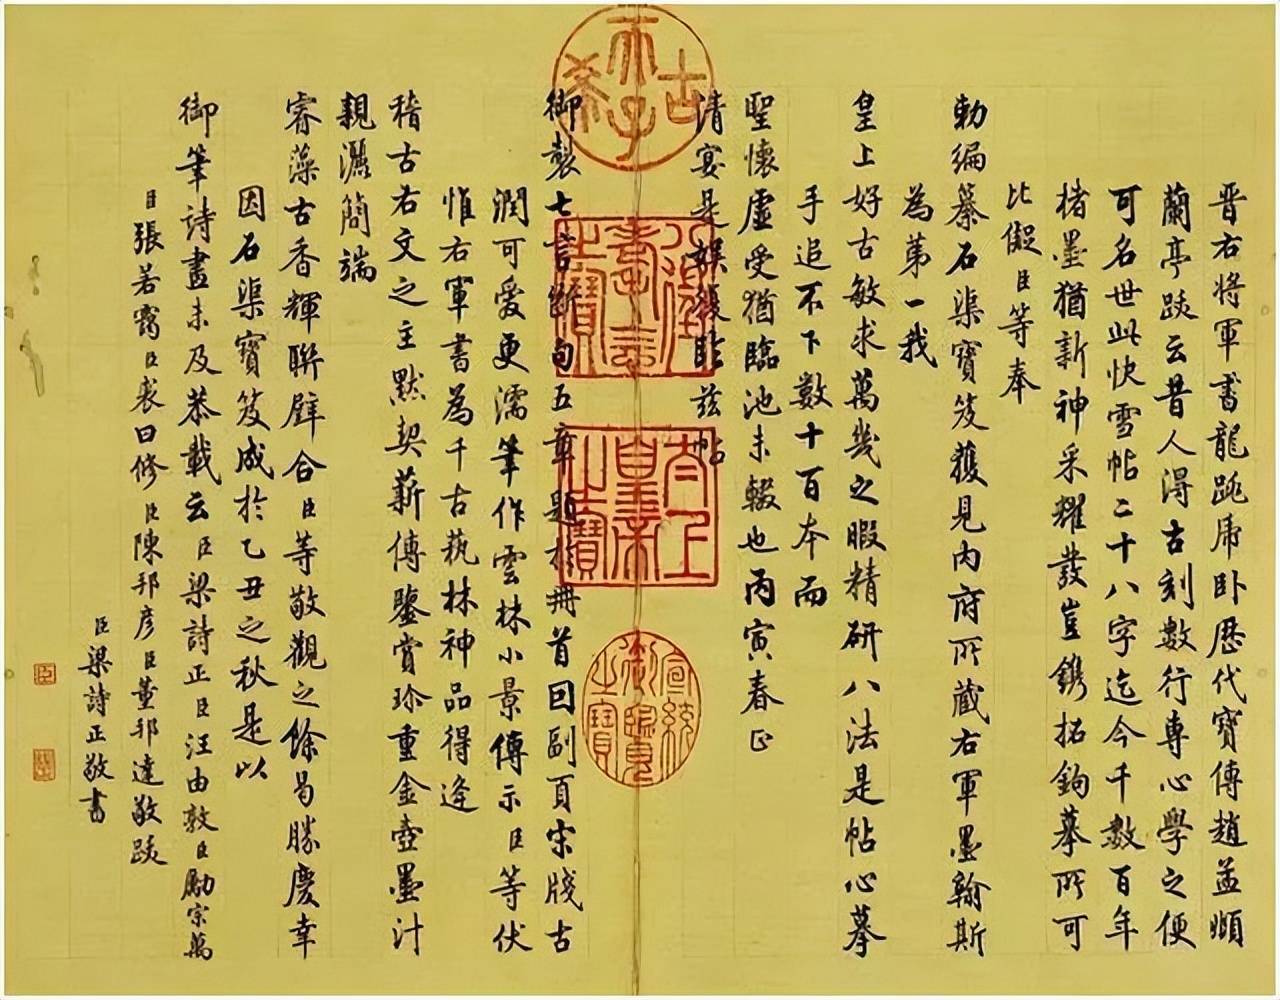 晋右将軍書龍跳虎卧歷代寶傳趙孟頫
蘭亭跋云昔人得古刻數行專心學之便
可名世此快雪帖二十八字迄今千數百年
楮墨猶新神采耀發豈鐫拓鉤摹所可
比儗臣等奉
勅編纂石渠寶笈獲見内府所藏右軍墨翰斯
為第一我
皇上好古敏求萬幾之暇精研八法是帖心摹
手追不下數十百本而
聖懷虛受猶臨池未輟也丙寅春正
清宴是娛復臨兹帖
御製七言斷句五章題於冊首回副頁宋牋古
潤可愛更濡筆作雲林小景傳示臣等伏
惟右軍書為千古藝林神品得逢
稽古右文之主默契薪傳鑒賞珍重金壺墨汁
親灑簡端
睿藻古香輝聯璧合臣等敬觀之餘曷勝慶幸
因石渠寶笈成於乙丑之秋是以
御筆詩畫未及恭載云臣梁詩正臣汪由敦臣勵宗萬
臣張若靄臣裘曰修臣陳邦彦臣董邦達敬跋
臣梁詩正敬書
古希天子
八徵耄念之寶
太上皇帝之寶
宣統御覽之寶